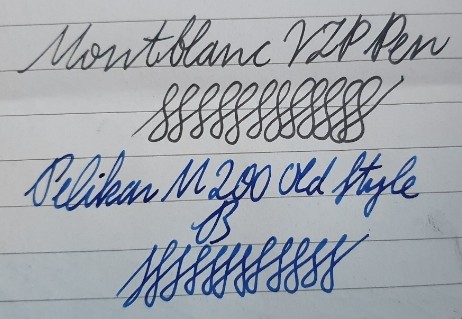 Montblanc VIP Pen
Pelikan M200 Old Style
B